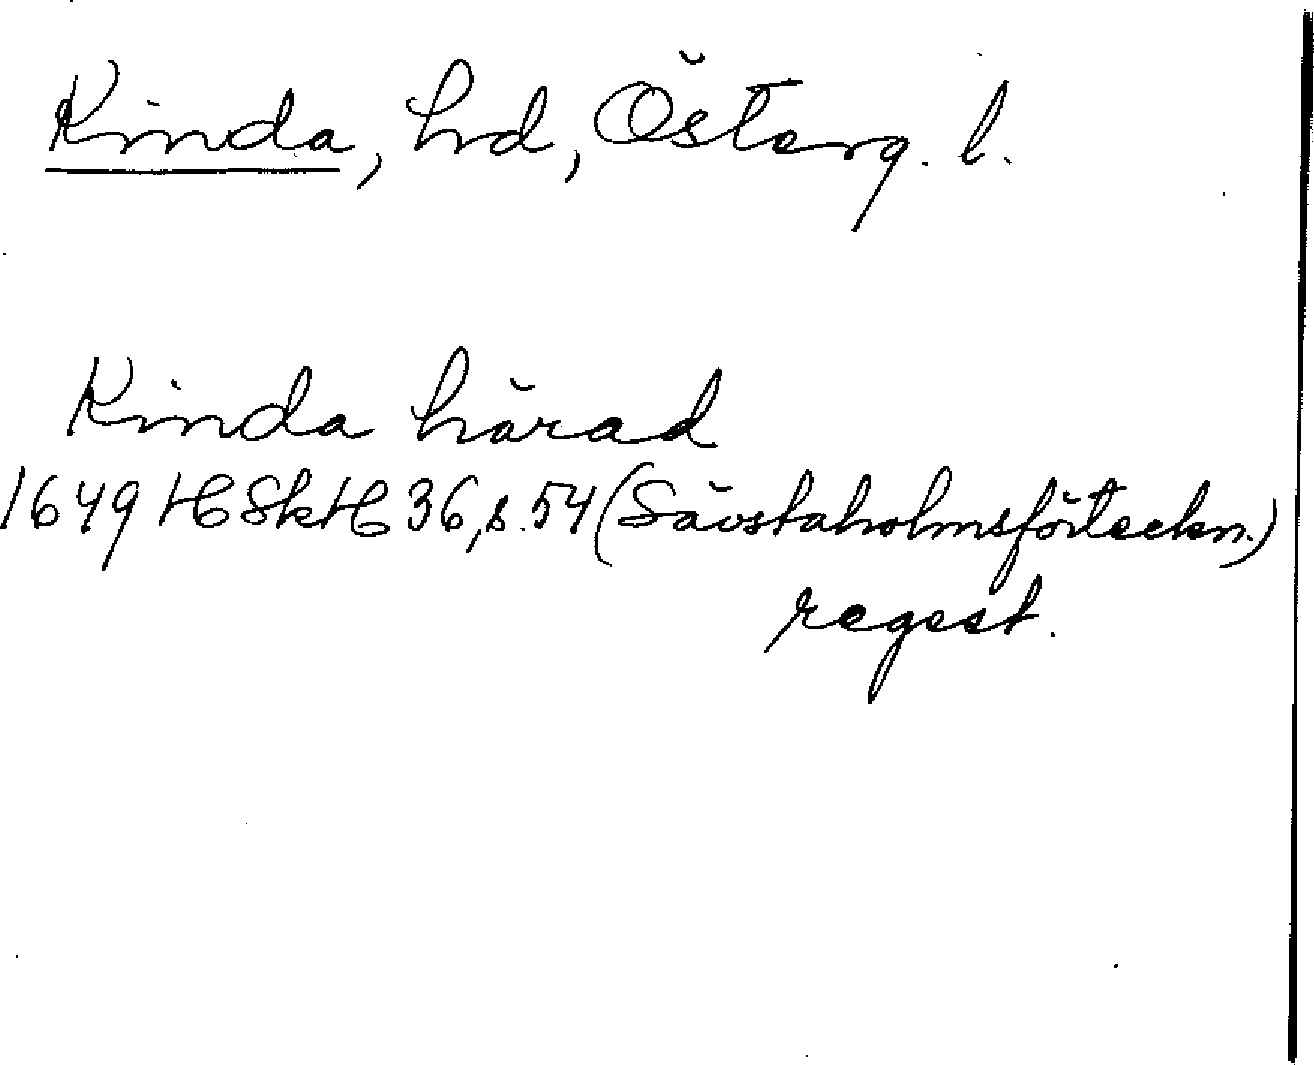 Kinda, hd, Österg. l.
Kinda härad
1649 HSkH 36, s. 54 (Sävstaholmsförteckn.)
regest.